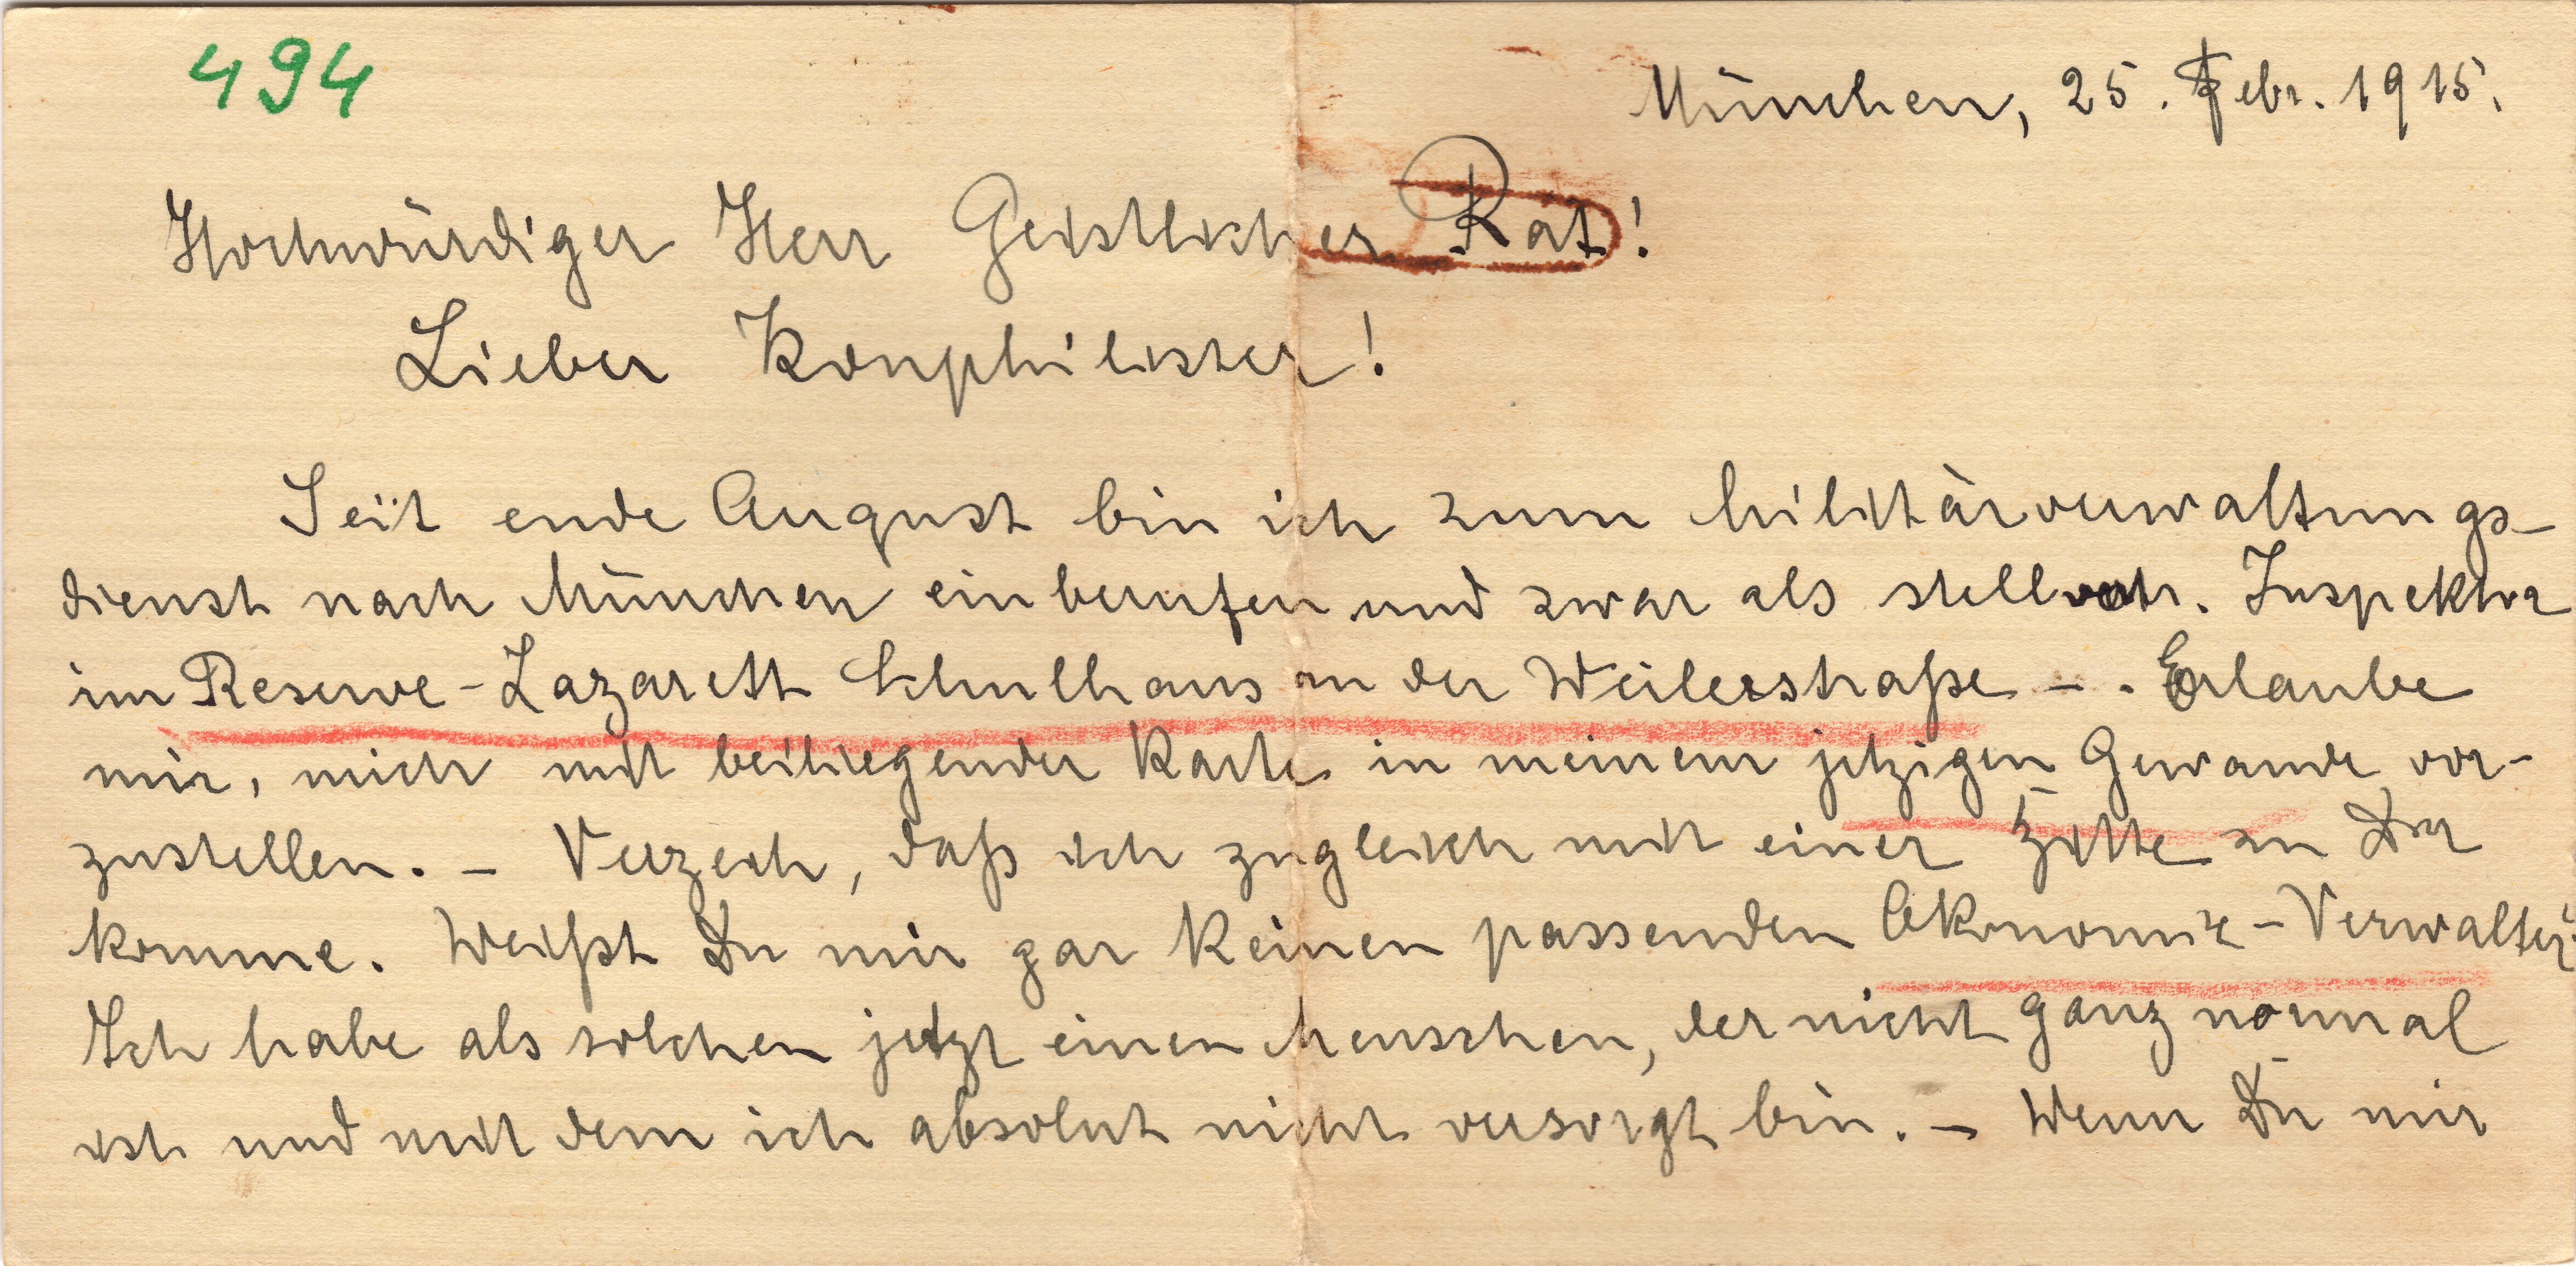 494
München, 25. Febr. 1915.
Hochwürdiger Herr Geistlicher Rat!
Lieber Konphilister!
Seit ende August bin ich zum Militärverwaltungs-
dienst nach München einberufen und zwar als stellvertr. Inspektor
im Reserve-Lazarett Schulhaus an der Weilerstraße - . Erlaube
mir, mich mit beiliegender Karte in meinem jetzigen Gewande vor-
zustellen. - Verzeih, daß ich zugleich mit einer Bitte zu Dir
komme. Weißt Du mir gar keinen passenden Ökonomie-Verwalter?
Ich habe als solchen jetzt einen Menschen, der nicht ganz normal
ist und mit dem ich absolut nicht versorgt bin. - Wenn Du mir